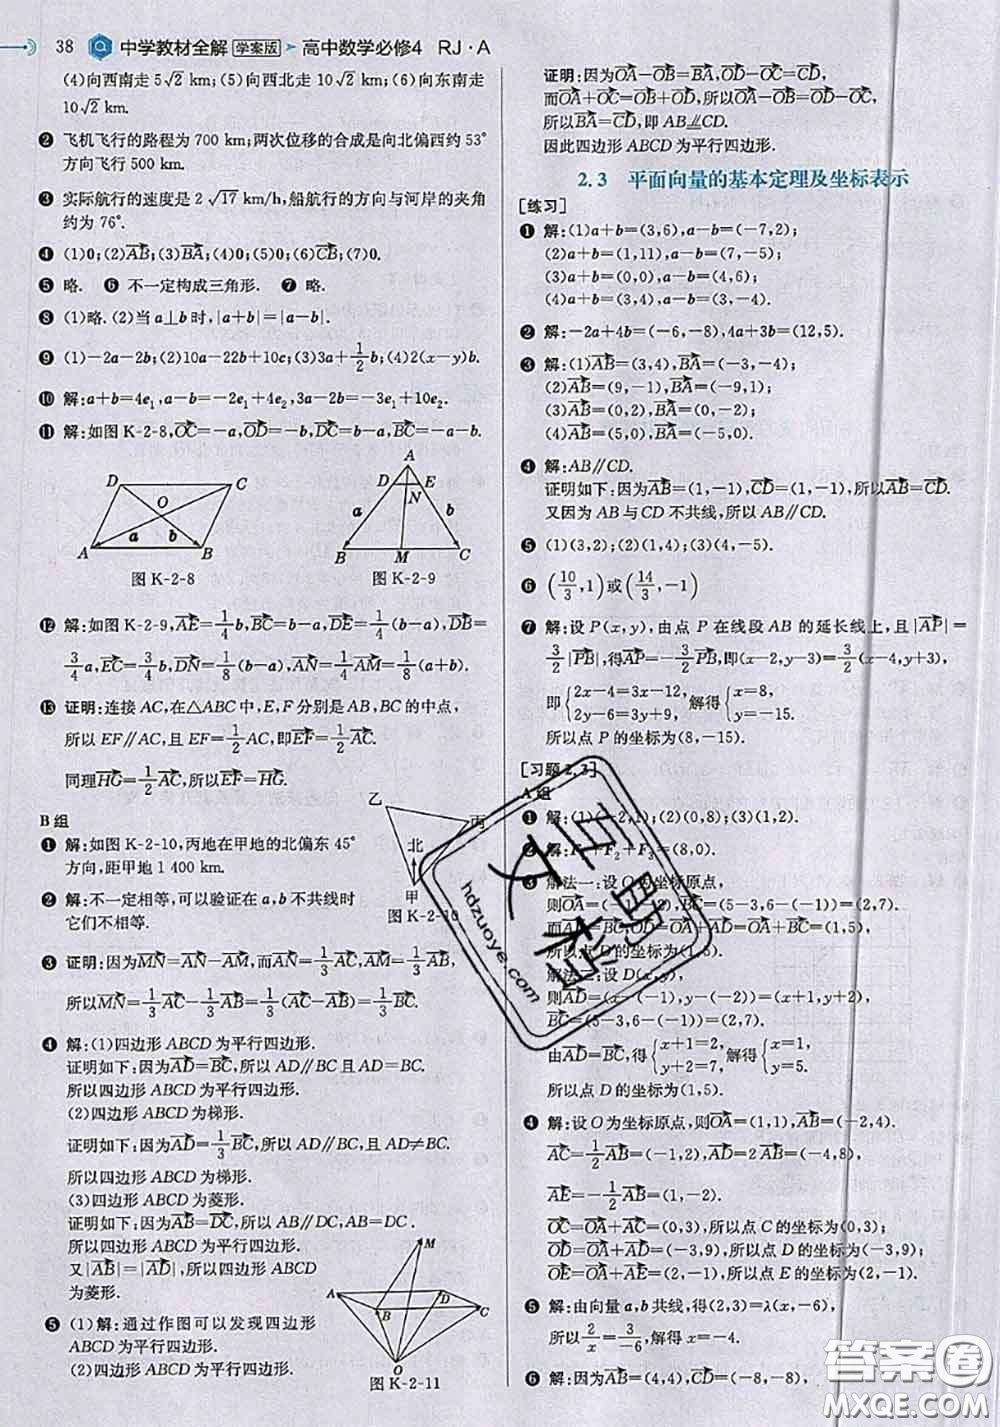 38 中学教材全解 学案版 高中数学必修4 RJ·A
(4)向西南走 5√2 km;(5)向西北走 10√2 km;(6)向东南走
10√2 km.
❷ 飞机飞行的路程为 700 km;两次位移的合成是向北偏西约 53°
方向飞行 500 km.
❸ 实际航行的速度是 2√17 km/h,船航行的方向与河岸的夹角
约为 76°.
❹ (1)0;(2)AB→;(3)BA→;(4)0;(5)0;(6)CB→;(7)0.
❺ 略. ❻ 不一定构成三角形. ❼ 略.
❽ (1)略.(2)当 a⊥b 时,|a+b|=|a-b|.
❾ (1)-2a-2b;(2)10a-22b+10c;(3)3a+1/2b;(4)2(x-y)b.
❿ 解:a+b=4e₁,a-b=-2e₁+4e₂,3a-2b=-3e₁+10e₂.
⓫ 解:如图 K-2-8,OC→=-a,OD→=-b,DC→=b-a,BC→=-a-b.
D C O a b A B
图 K-2-8
A D E N a b B M C
图 K-2-9
⓬ 解:如图 K-2-9,AE→=1/4b,BC→=b-a,DE→=1/4(b-a),DB→=
3/4a,EC→=3/4b,DN→=1/8(b-a),AN→=1/4AM→=1/8(a+b).
⓭ 证明:连接 AC,在△ABC 中,E,F 分别是 AB,BC 的中点,
所以 EF∥AC,且 EF=1/2AC,即EF→=1/2AC→.
同理HG→=1/2AC→,所以EF→=HG→.
B 组
❶ 解:如图 K-2-10,丙地在甲地的北偏东 45°
方向,距甲地 1 400 km.
乙 丙 北 甲
图 K-2-10
❷ 解:不一定相等,可以验证在 a,b 不共线时
它们不相等.
❸ 证明:因为MN→=AN→-AM→,而AN→=1/3AC→,AM→=1/3AB→,
所以MN→=1/3AC→-1/3AB→=1/3(AC→-AB→)=1/3BC→.
❹ 解:(1)四边形 ABCD 为平行四边形.
证明如下:因为AD→=BC→,所以 AD∥BC 且 AD=BC.
所以四边形 ABCD 为平行四边形.
(2)四边形 ABCD 为梯形.
证明如下:因为AD→=1/3BC→,所以 AD∥BC,且 AD≠BC.
所以四边形 ABCD 为梯形.
(3)四边形 ABCD 为菱形.
证明如下:因为AB→=DC→,所以 AB∥DC,AB=DC.
所以四边形 ABCD 为平行四边形.
又|AB→|=|AD→|,所以四边形 ABCD
为菱形.
❺ (1)解:通过作图可以发现四边形
ABCD 为平行四边形.
(2)四边形 ABCD 为平行四边形.
M A D B C O
图 K-2-11
证明:因为OA→-OB→=BA→,OD→-OC→=CD→,
而OA→+OC→=OB→+OD→,所以OA→-OB→=OD→-OC→,
所以BA→=CD→,即 AB∥CD.
因此四边形 ABCD 为平行四边形.
2.3 平面向量的基本定理及坐标表示
[练习]
❶ 解:(1)a+b=(3,6),a-b=(-7,2);
(2)a+b=(1,11),a-b=(7,-5);
(3)a+b=(0,0),a-b=(4,6);
(4)a+b=(3,4),a-b=(3,-4).
❷ 解:-2a+4b=(-6,-8),4a+3b=(12,5).
❸ 解:(1)AB→=(3,4),BA→=(-3,-4);
(2)AB→=(9,-1),BA→=(-9,1);
(3)AB→=(0,2),BA→=(0,-2);
(4)AB→=(5,0),BA→=(-5,0).
❹ 解:AB∥CD.
证明如下:因为AB→=(1,-1),CD→=(1,-1),所以AB→=CD→.
又因为 AB 与 CD 不共线,所以 AB∥CD.
❺ (1)(3,2);(2)(1,4);(3)(4,-5).
❻ (10/3,1)或(14/3,-1)
❼ 解:设 P(x,y),由点 P 在线段 AB 的延长线上,且|AP→|=
3/2|PB→|,得AP→=-3/2PB→,即(x-2,y-3)=3/2(x-4,y+3),
即{2x-4=3x-12, 2y-6=3y+9,解得{x=8, y=-15.
所以点 P 的坐标为(8,-15).
[习题 2.3]
A 组
❶ 解:(1)(-2,1);(2)(0,8);(3)(1,2).
❷ 解:F₁+F₂+F₃=(8,0).
❸ 解法一:设 O 为坐标原点,
则OA→=(-1,-2),BC→=(5-3,6-(-1))=(2,7).
而AD→=BC→,OD→=OA→+AD→=OA→+BC→=(1,5),
所以点 D 的坐标为(1,5).
解法二:设 D(x,y),
则AD→=(x-(-1),y-(-2))=(x+1,y+2),
BC→=(5-3,6-(-1))=(2,7).
由AD→=BC→,得{x+1=2, y+2=7,解得{x=1, y=5.
所以点 D 的坐标为(1,5).
❹ 解:设 O 为坐标原点,则OA→=(1,1),AB→=(-2,4).
AC→=1/2AB→=(-1,2),AD→=2AB→=(-4,8),
AE→=-1/2AB→=(1,-2).
OC→=OA→+AC→=(0,3),所以点 C 的坐标为(0,3);
OD→=OA→+AD→=(-3,9),所以点 D 的坐标为(-3,9);
OE→=OA→+AE→=(2,-1),所以点 E 的坐标为(2,-1).
❺ 解:由向量 a,b 共线,得(2,3)=λ(x,-6),
所以2/x=3/-6,解得 x=-4.
❻ 解:因为AB→=(4,4),CD→=(-8,-8),
互助文档
hdzuoye.com
答案圈
MXQE.COM